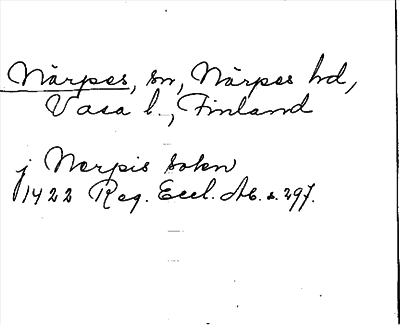 Närpes, sn, Närpes hd,
Vasa l., Finland
j Nerpis sokn
1422 Reg. Eccl. Ab. s. 297.